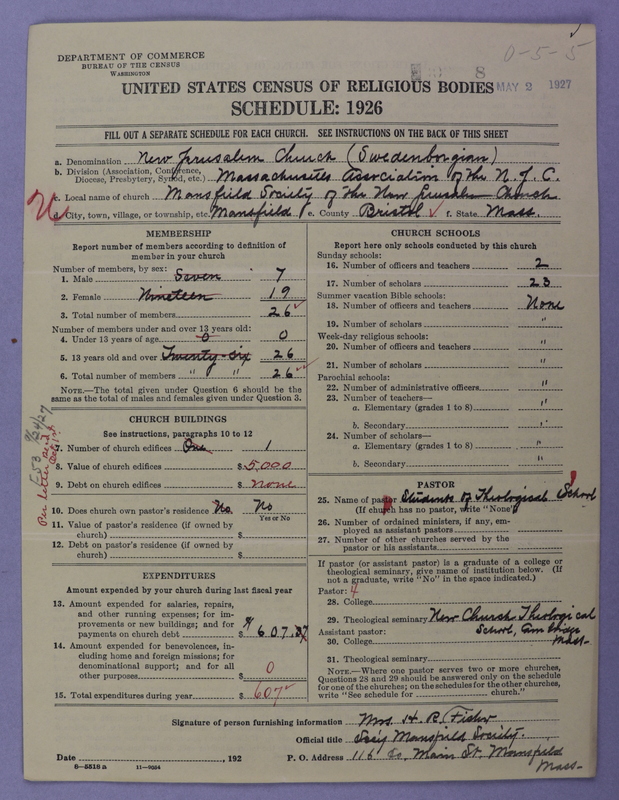 0-5-5
DEPARTMENT OF COMMERCE
BUREAU OF THE CENSUS
WASHINGTON
8
MAY 2 1927
UNITED STATES CENSUS OF RELIGIOUS BODIES
SCHEDULE: 1926
FILL OUT A SEPARATE SCHEDULE FOR EACH CHURCH. SEE INSTRUCTIONS ON THE BACK OF THIS SHEET
a. Denomination New Jerusalem Church (Swedenborgian)
b. Division (Association, Conference, Diocese, Presbytery, Synod, etc.) Massachusetts Association of the N. J. C.
c. Local name of church Mansfield Society of the New Jerusalem Church
d. City, town, village, or township, etc. Mansfield e. County Bristol ✓ f. State Mass.
MEMBERSHIP
Report number of members according to definition of
member in your church
Number of members, by sex:
1. Male Seven 7
2. Female Nineteen 19
3. Total number of members 26 ✓
Number of members under and over 13 years old:
4. Under 13 years of age 0 0
5. 13 years old and over Twenty-six 26
6. Total number of members " " 26 ✓
NOTE.—The total given under Question 6 should be the
same as the total of males and females given under Question 3.
CHURCH BUILDINGS
See instructions, paragraphs 10 to 12
7. Number of church edifices One 1
8. Value of church edifices $ 5,000
9. Debt on church edifices $ none
10. Does church own pastor's residence No. No
Yes or No
11. Value of pastor's residence (if owned by
church) $
12. Debt on pastor's residence (if owned by
church) $
Per letter
EXPENDITURES
Amount expended by your church during last fiscal year
13. Amount expended for salaries, repairs,
and other running expenses; for im-
provements or new buildings; and for
payments on church debt $ 607.37
14. Amount expended for benevolences, in-
cluding home and foreign missions; for
denominational support; and for all
other purposes $ 0
15. Total expenditures during year $ 607 ✓
CHURCH SCHOOLS
Report here only schools conducted by this church
Sunday schools:
16. Number of officers and teachers 2
17. Number of scholars 23
Summer vacation Bible schools:
18. Number of officers and teachers None
19. Number of scholars "
Week-day religious schools:
20. Number of officers and teachers "
21. Number of scholars "
Parochial schools:
22. Number of administrative officers "
23. Number of teachers—
a. Elementary (grades 1 to 8) "
b. Secondary "
24. Number of scholars—
a. Elementary (grades 1 to 8) "
b. Secondary "
PASTOR
25. Name of pastor Students of Theological School
(If church has no pastor, write "None")
26. Number of ordained ministers, if any, em-
ployed as assistant pastors
27. Number of other churches served by the
pastor or his assistants
If pastor (or assistant pastor) is a graduate of a college or
theological seminary, give name of institution below. (If
not a graduate, write "No" in the space indicated.)
Pastor: 4
28. College
29. Theological seminary New Church Theological
School, Cambridge
Mass-
Assistant pastor:
30. College
31. Theological seminary
NOTE.—Where one pastor serves two or more churches,
Questions 28 and 29 should be answered only on the schedule
for one of the churches; on the schedules for the other churches,
write "See schedule for church."
Signature of person furnishing information Mrs. H. R. Fisher
Official title Sec'y Mansfield Society.
Date , 192
P. O. Address 116 So. Main St. Mansfield
Mass-
8—5518 a 11—9034